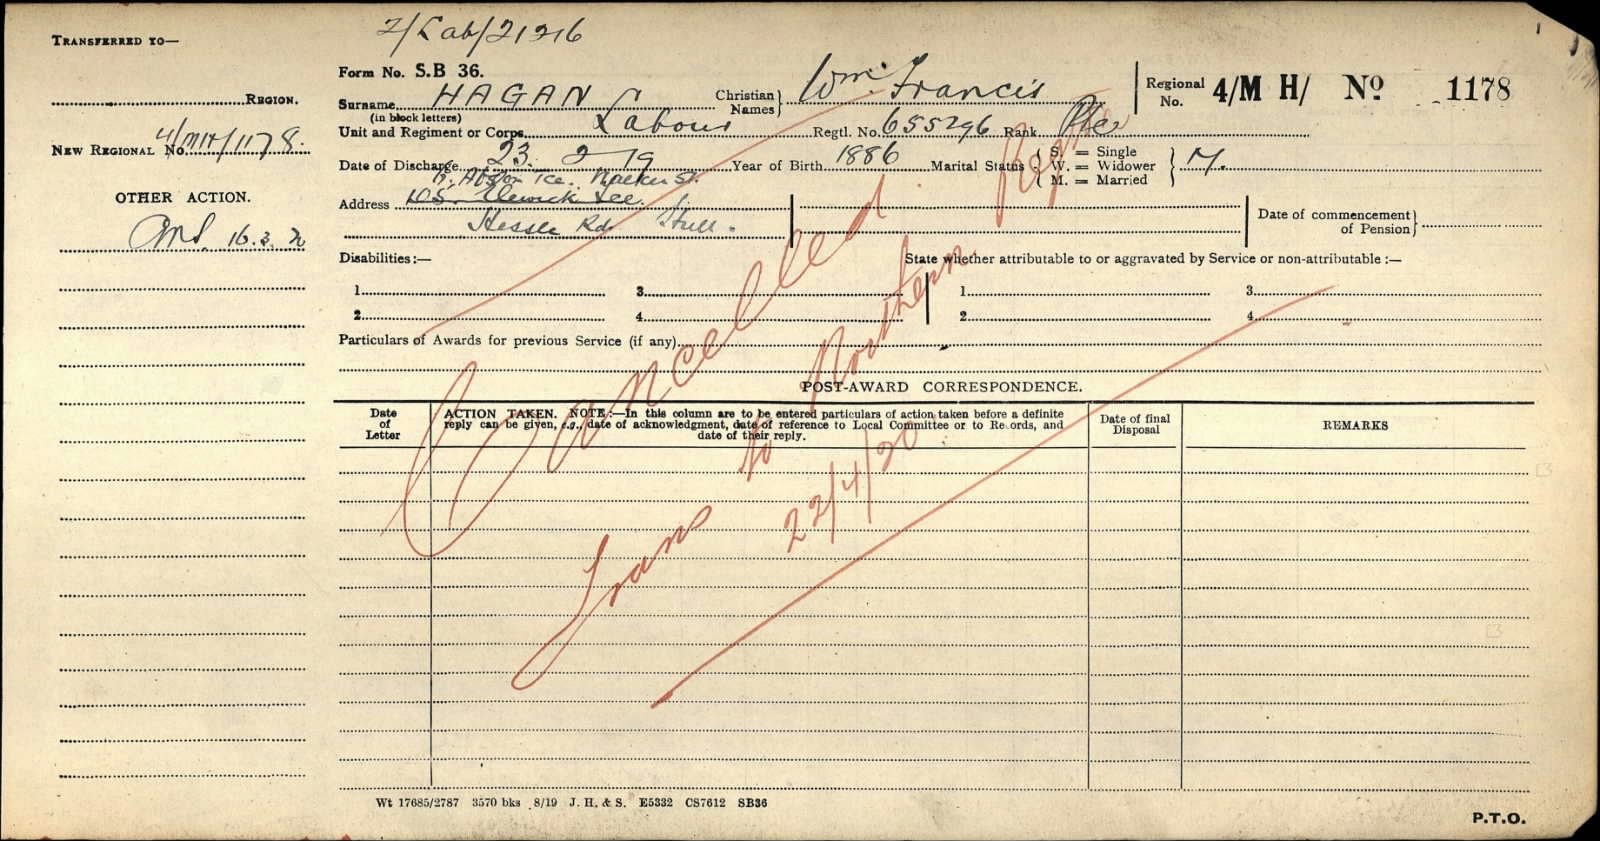 TRANSFERRED TO—
REGION.
NEW REGIONAL NO. 4/MH/1178.
OTHER ACTION.
16.3.20
2/Lab/21216
Form No. S.B 36.
Surname HAGAN
(in block letters)
Christian Names} Wm. Francis
Regional No. 4/M H/ No 1178
Unit and Regiment or Corps Labour Regtl. No. 655296 Rank Pte
Date of Discharge 23. 2 19 Year of Birth 1886 Marital Status { S. = Single W. = Widower M. = Married } M.
Tce. St.
Address 105 Tce.
Hessle Rd. Hull.
Date of commencement of Pension}
Disabilities:— State whether attributable to or aggravated by Service or non-attributable :—
1 3 1 3
2 4 2 4
Particulars of Awards for previous Service (if any)
Cancelled.
Trans to Northern Region
22/4/20
POST-AWARD CORRESPONDENCE.
Date of Letter
ACTION TAKEN. NOTE:—In this column are to be entered particulars of action taken before a definite
reply can be given, e.g., date of acknowledgment, date of reference to Local Committee or to Records, and
date of their reply.
Date of final Disposal
REMARKS
Wt 17685/2787 3570 bks 8/19 J. H. & S. E5332 CS7612 SB36
P.T.O.